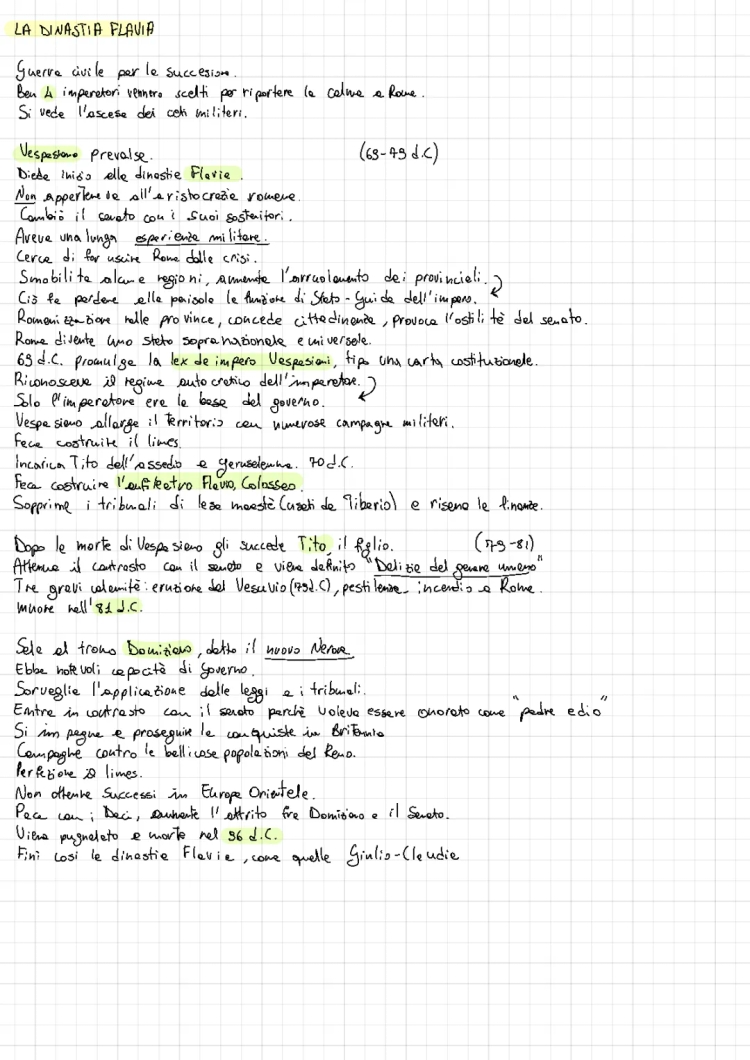 LA DINASTIA FLAVIA
Guerra civile per la succesione.
Ben 4 imperatori vennero scelti per riportare la calma a Roma.
Si vede l'ascesa dei ceti militari.
Vespasiano prevalse. (69-79 d.C)
Diede inizio alla dinastia Flavia.
Non apparteneva all'aristocrazia romana.
Cambiò il senato con i suoi sostenitori.
Aveva una lunga esperienza militare.
Cerca di far uscire Roma dalla crisi.
Smobilita alcune regioni, aumenta l'arruolamento dei provinciali.
Ciò fa perdere alla penisola la funzione di Stato-Guida dell'impero.
Romanizzazione nelle province, concede cittadinanza, provoca l'ostilità del senato.
Roma diventa uno stato sopranazionale e universale.
69 d.C. promulga la lex de impero Vespasiani, tipo una carta costituzionale.
Riconosceva il regime autocratico dell'imperatore.
Solo l'imperatore era la base del governo.
Vespasiano allarga il territorio con numerose campagne militari.
Fece costruire il limes.
Incarica Tito dell'assedio a Gerusalemme. 70 d.C.
Fece costruire l'anfiteatro Flavio, Colosseo.
Sopprime i tribunali di lesa maestà (usati da Tiberio) e risana le finanze.
Dopo la morte di Vespasiano gli succede Tito, il figlio. (79-81)
Attenua il contrasto con il senato e viene definito "Delizia del genere umano"
Tre gravi calamità: eruzione del Vesuvio (79d.C), pestilenza, incendio a Roma.
muore nell'81 d.C.
Sale al trono Domiziano, detto il nuovo Nerone
Ebbe notevoli capacità di governo.
Sorveglia l'applicazione delle leggi e i tribunali.
Entra in contrasto con il senato perchè voleva essere onorato come "padre e dio"
Si impegna a proseguire la conquista in Britannia
Campagne contro le bellicose popolazioni del Reno.
Perfeziona il limes.
Non ottenne successi in Europa Orientale.
Pace con i Daci, aumenta l'attrito fra Domiziano e il Senato.
Viene pugnalato a morte nel 96 d.C.
Finì così la dinastia Flavia, come quella Giulio-Claudia